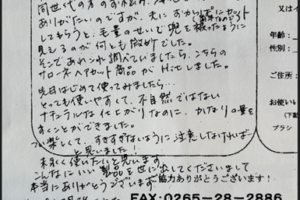 同世代の方のお悩み
ありがたいのですが、夫にすかればにセット
してもらうと、毛量のせいで兜を被ったように
見えるのが何とも微妙でした。
そこであれこれ調べていましたら、こちらの
サロンネヘアセット商品がHitしました。
先日はじめて使ってみました…
とっても使いやすくて、不自然ではない
ナチュラルな仕上がりなのに、かなりの量を
すくことができました。
つい楽しくて、すきすぎないように注意しなければ
と思いました!
末永く使いたいと思います。
こんなにいい製品を世に出してくださいまして
本当にありがとうございます
協力ありがとうございます!
FAX:0265-28-2886
又は
年齢:
性別:
ご住所:
お使い
(下
ブラシ